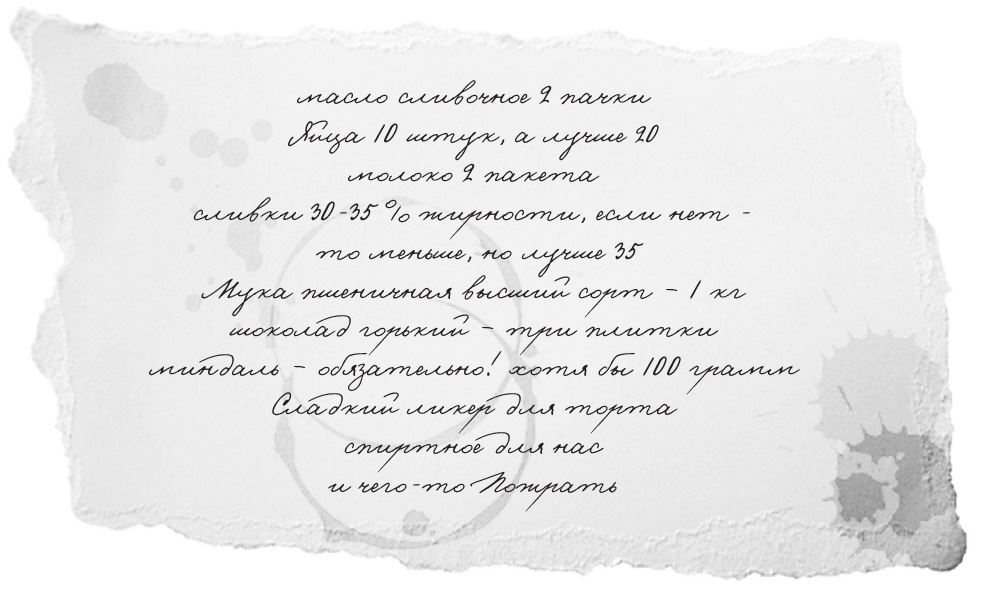 масло сливочное 2 пачки
Яйца 10 штук, а лучше 20
молоко 2 пакета
сливки 30-35 % жирности, если нет -
то меньше, но лучше 35
Мука пшеничная высший сорт - 1 кг
шоколад горький - три плитки
миндаль - обязательно! хотя бы 100 грамм
Сладкий ликер для торта
спиртное для нас
и чего-то Пожрать